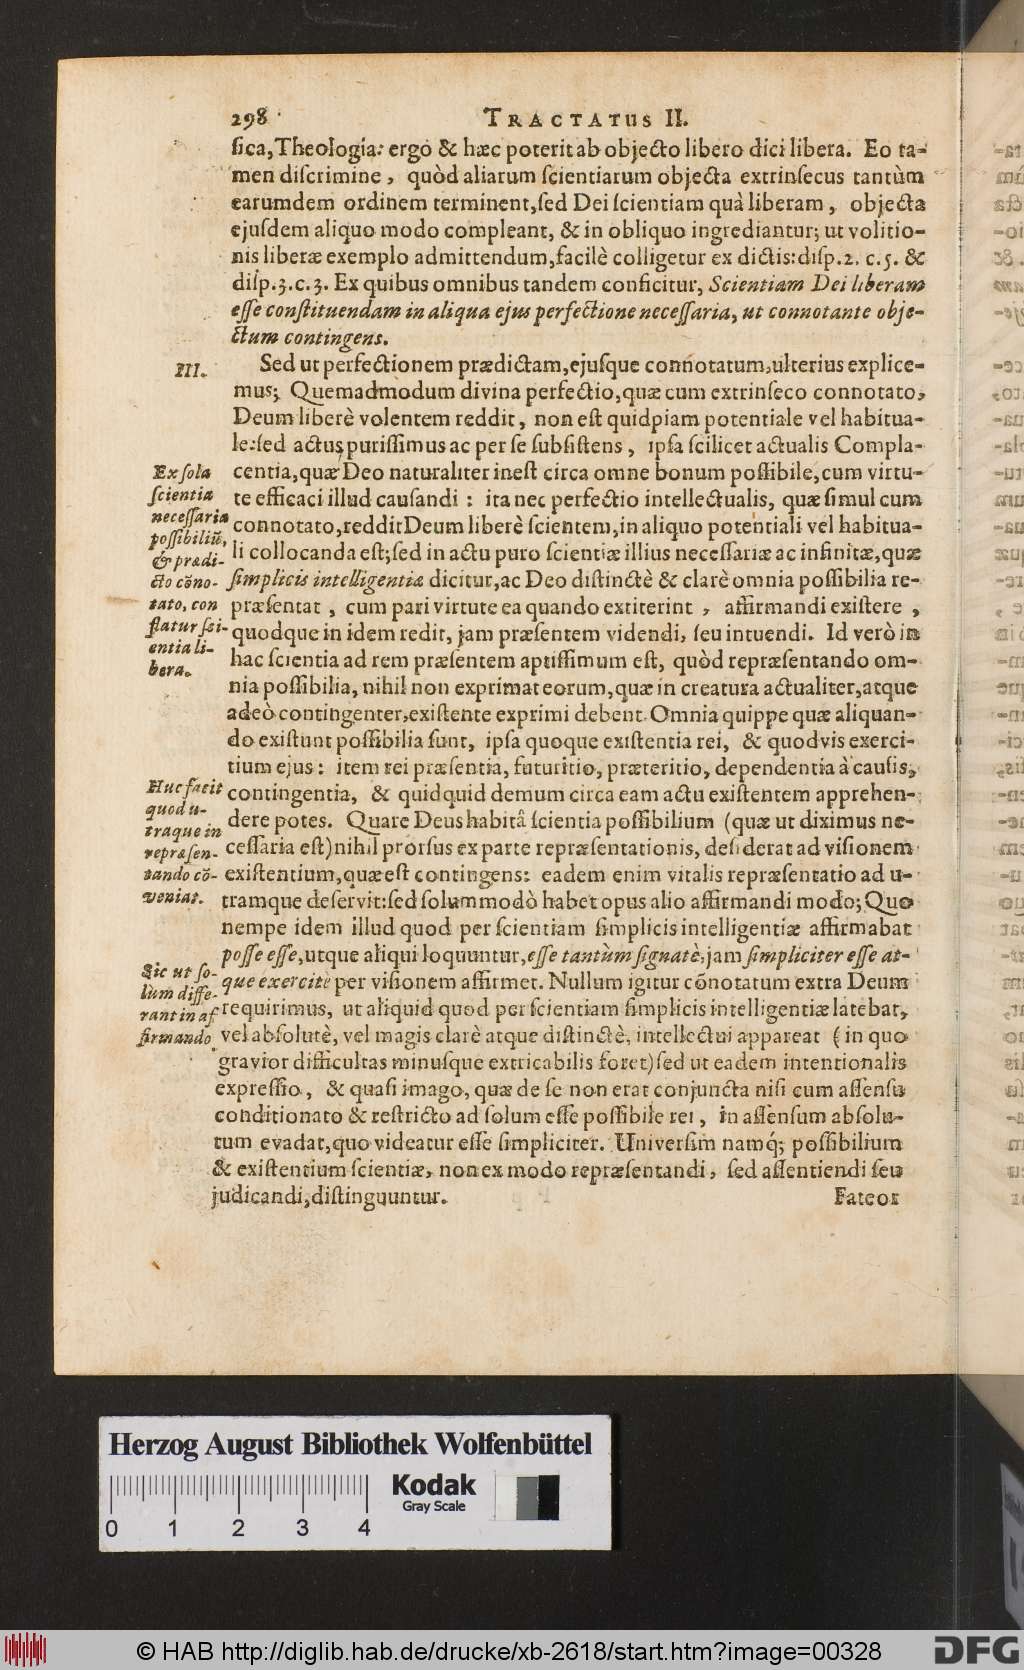 298 TRACTATUS II.
ſica, Theologia: ergo & hæc poterit ab objecto libero dici libera. Eo ta-
men diſcrimine, quòd aliarum ſcientiarum objecta extrinſecus tantùm
earumdem ordinem terminent, ſed Dei ſcientiam quà liberam, objecta
ejuſdem aliquo modo compleant, & in obliquo ingrediantur; ut volitio-
nis liberæ exemplo admittendum, facilè colligetur ex dictis: diſp. 2. c. 5. &
diſp. 3. c. 3. Ex quibus omnibus tandem conficitur, Scientiam Dei liberam
eſſe conſtituendam in aliqua ejus perfectione neceſſaria, ut connotante obje-
ctum contingens.
III.
Sed ut perfectionem prædictam, ejuſque connotatum, ulterius explice-
mus; Quemadmodum divina perfectio, quæ cum extrinſeco connotato,
Deum liberè volentem reddit, non eſt quidpiam potentiale vel habitua-
le: ſed actus puriſſimus ac per ſe ſubſiſtens, ipſa ſcilicet actualis Compla-
centia, quæ Deo naturaliter ineſt circa omne bonum poſſibile, cum virtu-
te efficaci illud cauſandi: ita nec perfectio intellectualis, quæ ſimul cum
connotato, reddit Deum liberè ſcientem, in aliquo potentiali vel habitua-
li collocanda eſt; ſed in actu puro ſcientiæ illius neceſſariæ ac infinitæ, quæ
ſimplicis intelligentiæ dicitur, ac Deo diſtinctè & clarè omnia poſſibilia re-
præſentat, cum pari virtute ea quando extiterint, affirmandi exiſtere,
quodque in idem redit, jam præſentem videndi, ſeu intuendi. Id verò in
hac ſcientia ad rem præſentem aptiſſimum eſt, quòd repræſentando om-
nia poſſibilia, nihil non exprimat eorum, quæ in creatura actualiter, atque
adeò contingenter, exiſtente exprimi debent. Omnia quippe quæ aliquan-
do exiſtunt poſſibilia ſunt, ipſa quoque exiſtentia rei, & quodvis exerci-
tium ejus: item rei præſentia, futuritio, præteritio, dependentia à cauſis,
contingentia, & quidquid demum circa eam actu exiſtentem apprehen-
dere potes. Quare Deus habitâ ſcientia poſſibilium (quæ ut diximus ne-
ceſſaria eſt) nihil prorſus ex parte repræſentationis, deſiderat ad viſionem
exiſtentium, quæ eſt contingens: eadem enim vitalis repræſentatio ad u-
tramque deſervit: ſed ſolummodò habet opus alio affirmandi modo; Quo
nempe idem illud quod per ſcientiam ſimplicis intelligentiæ affirmabat
poſſe eſſe, utque aliqui loquuntur, eſſe tantùm ſignatè, jam ſimpliciter eſſe at-
que exercitè per viſionem affirmet. Nullum igitur cõnotatum extra Deum
requirimus, ut aliquid quod per ſcientiam ſimplicis intelligentiæ latebat,
vel abſolutè, vel magis clarè atque diſtinctè, intellectui appareat (in quo
gravior difficultas minuſque extricabilis foret) ſed ut eadem intentionalis
expreſſio, & quaſi imago, quæ de ſe non erat conjuncta niſi cum aſſenſu
conditionato & reſtricto ad ſolum eſſe poſſibile rei, in aſſenſum abſolu-
tum evadat, quo videatur eſſe ſimpliciter. Univerſim namq́; poſſibilium
& exiſtentium ſcientiæ, non ex modo repræſentandi, ſed aſſentiendi ſeu
judicandi, diſtinguuntur. Fateor
Ex ſola
ſcientia
neceſſaria
poſſibiliũ,
& prædi-
cto cõno-
tato, con
ſtatur ſci-
entia li-
bera.
Huc facit
quod u-
traque in
repræſen-
tando cõ-
veniat.
Sic ut ſo-
lùm diffe-
rant in af
firmando
Herzog August Bibliothek Wolfenbüttel
Kodak
Gray Scale
0 1 2 3 4
© HAB http://diglib.hab.de/drucke/xb-2618/start.htm?image=00328
DFG